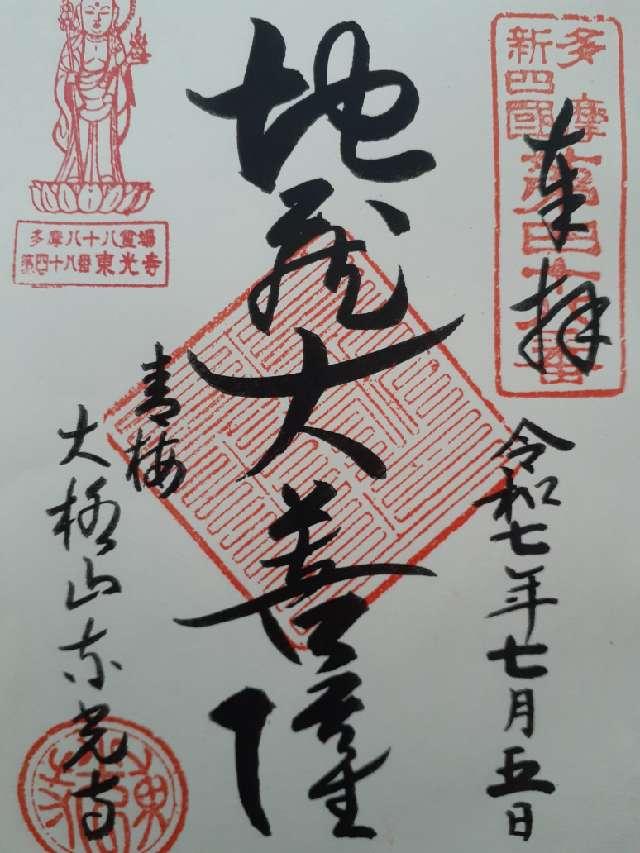 多摩
新四國
奉拝
令和七年七月五日
地蔵大菩薩
青梅
大柳山東光寺
多摩八十八霊場
第四十八番東光寺